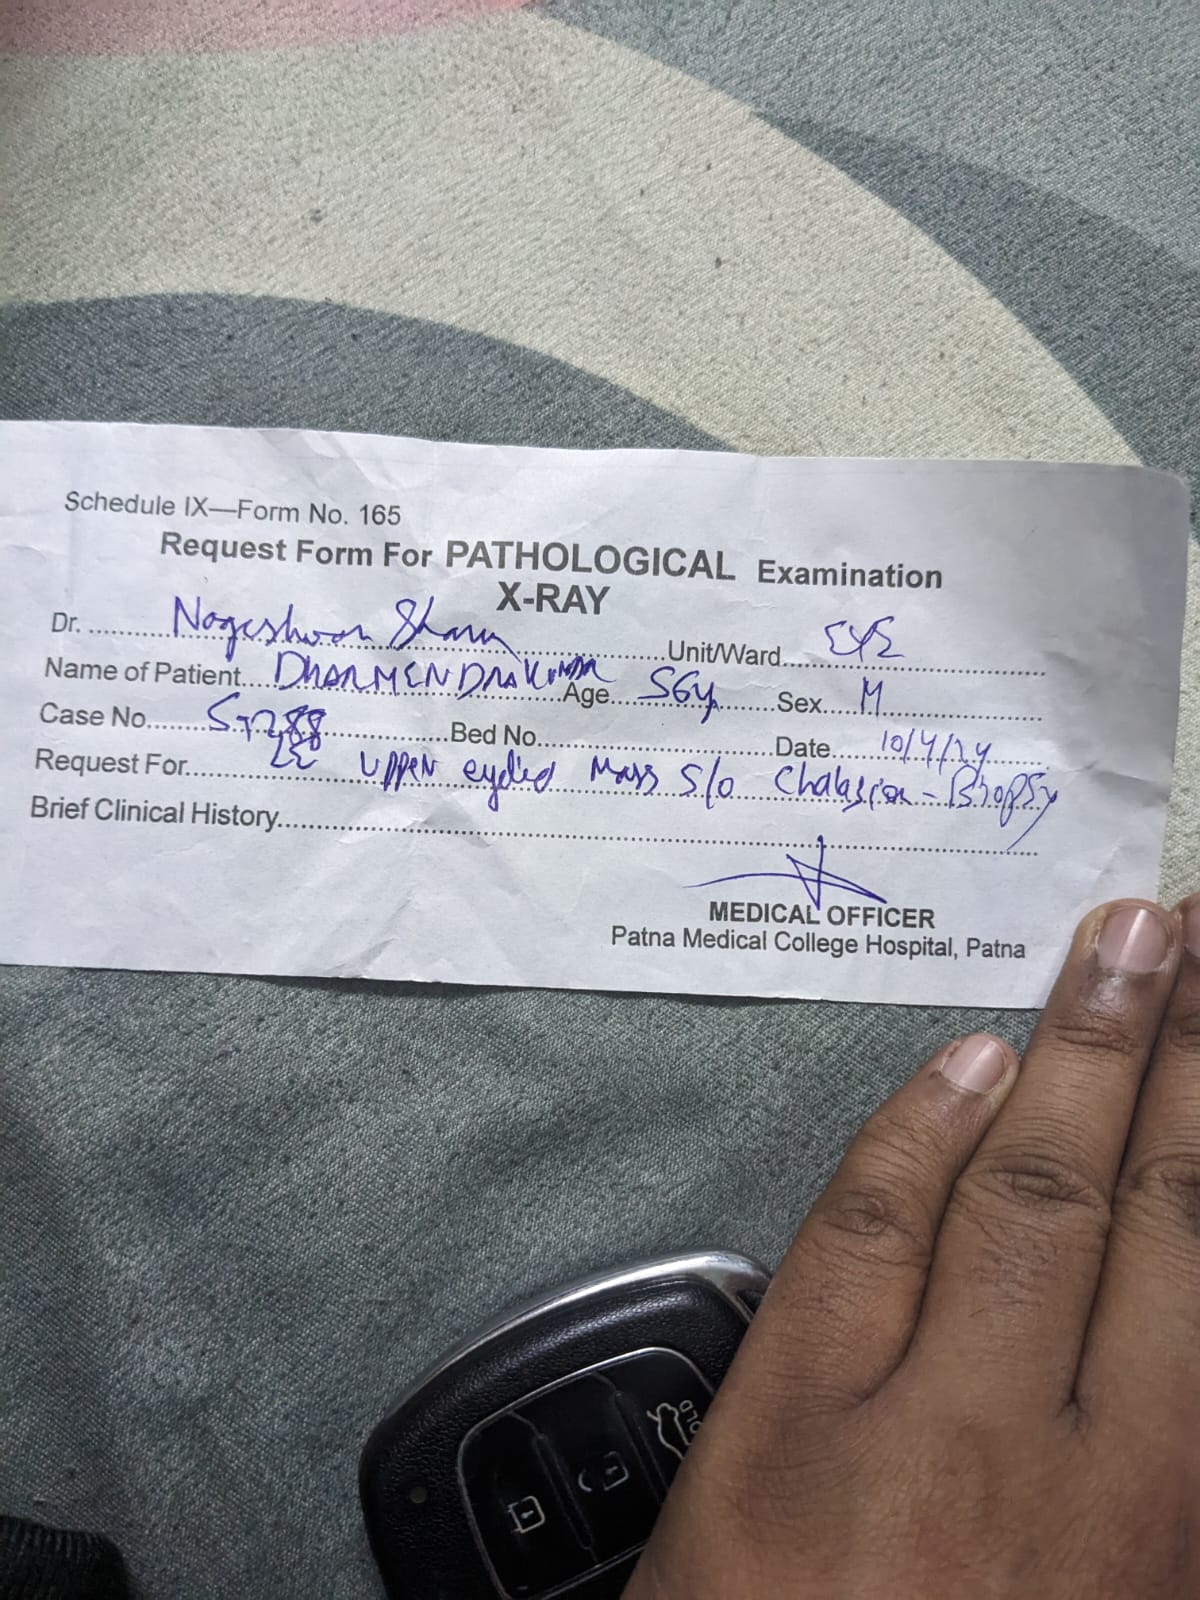 Schedule IX—Form No. 165
Request Form For PATHOLOGICAL Examination
X-RAY
Dr. Nageshwar Sharma Unit/Ward EYE
Name of Patient DHARMENDRA KUMAR Age 56y Sex M
Case No. Bed No. Date 10/4/24
Request For UPPER eyelid Mass S/o Chalazion - Biopsy
Brief Clinical History
MEDICAL OFFICER
Patna Medical College Hospital, Patna
HOLD